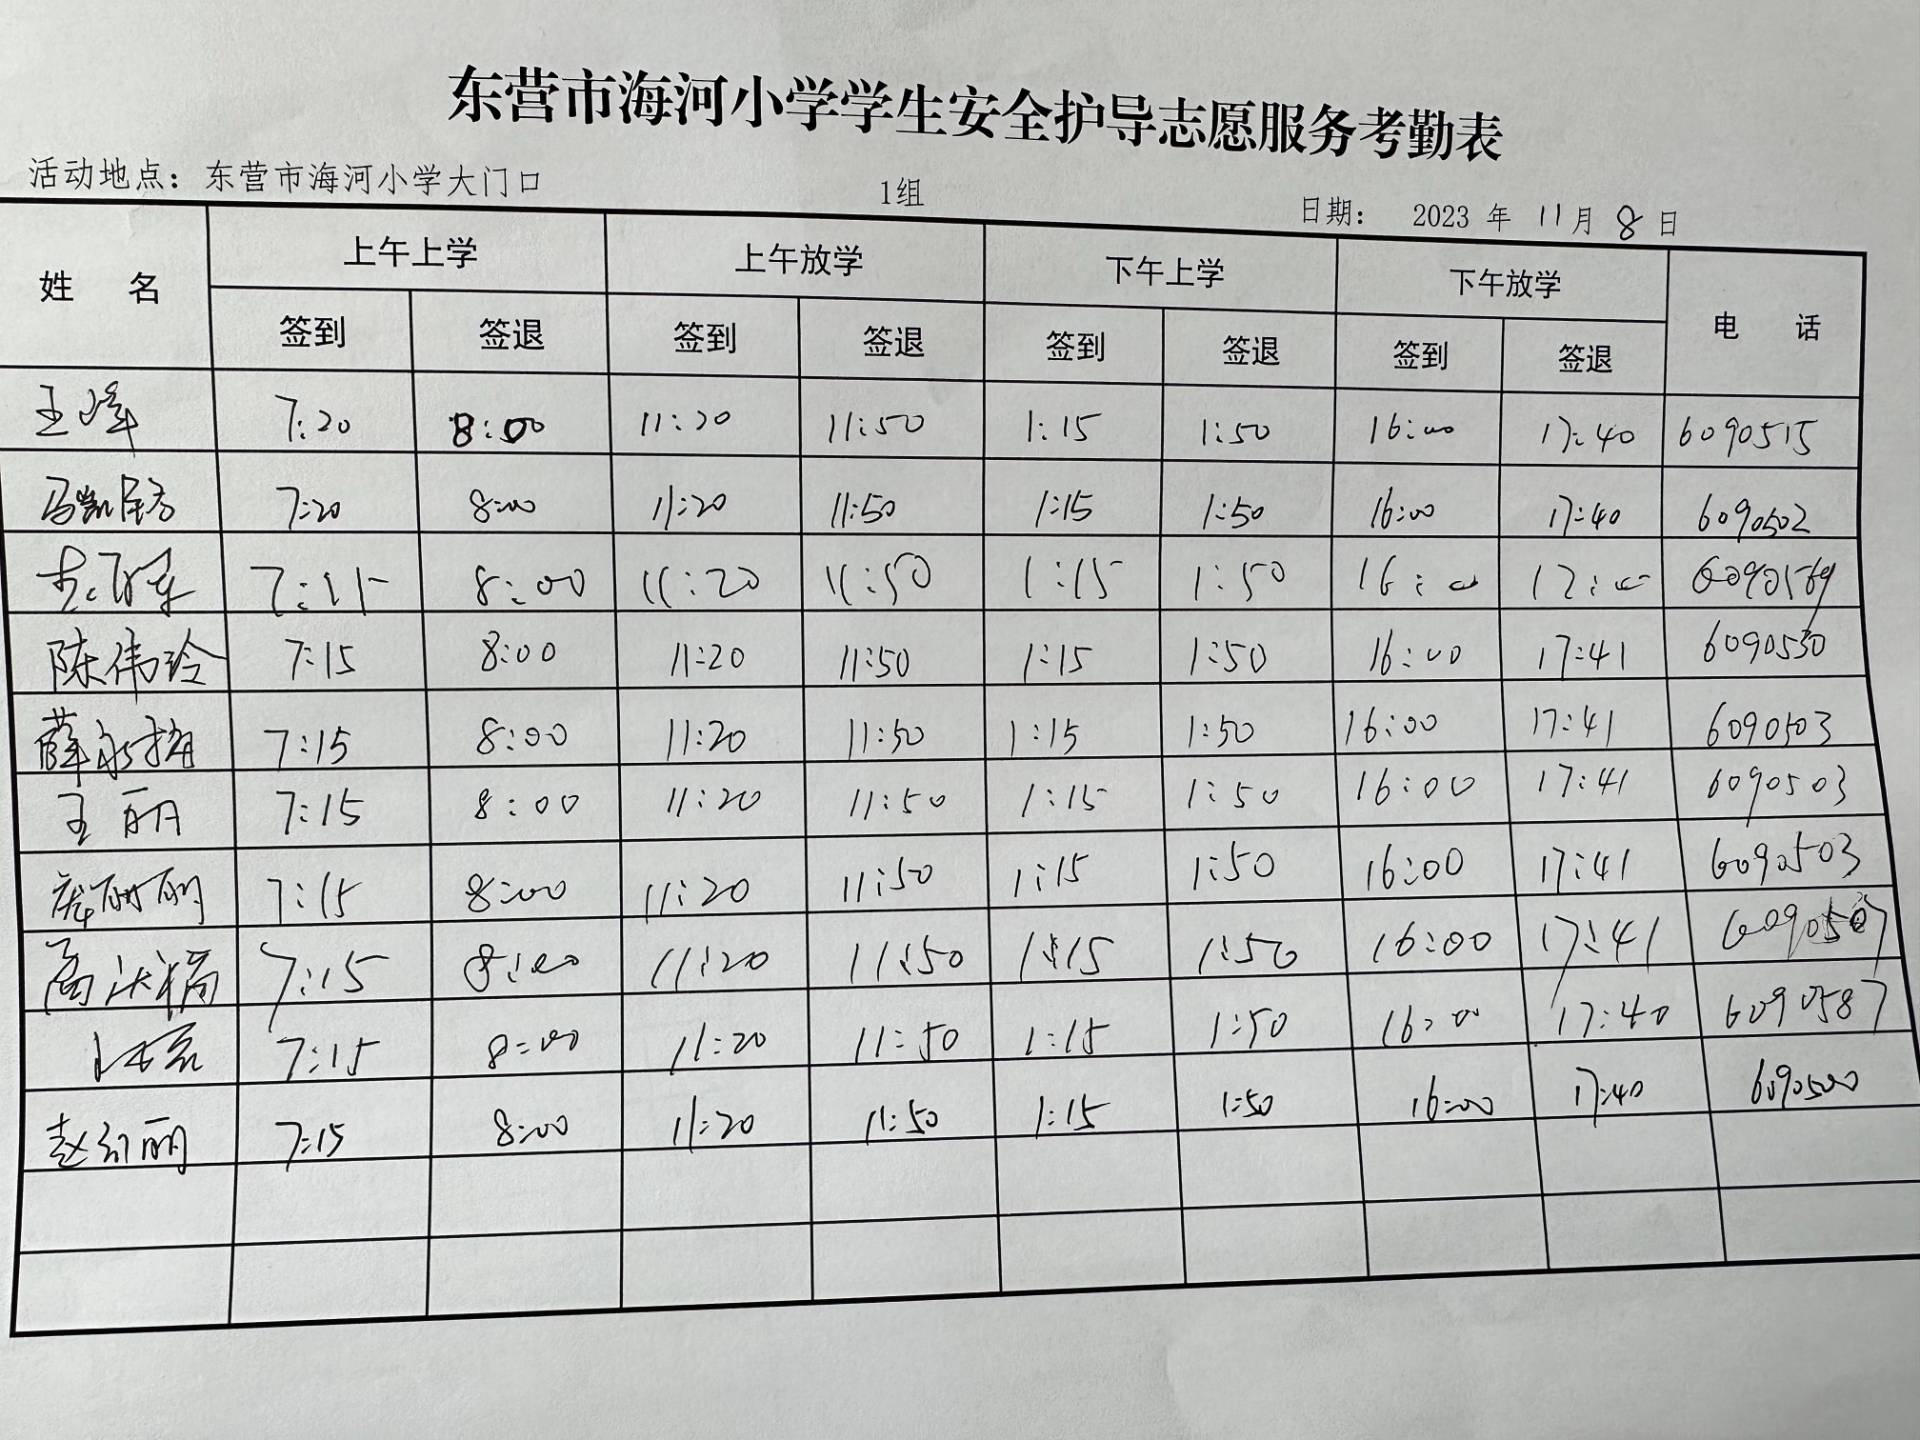 东营市海河小学学生安全护导志愿服务考勤表
活动地点：东营市海河小学大门口 1组 日期： 2023 年 11 月 8 日
姓 名 上午上学 上午放学 下午上学 下午放学 电 话
签到 签退 签到 签退 签到 签退 签到 签退
王峰 7:20 8:00 11:20 11:50 1:15 1:50 16:00 17:40 6090515
马凯 7:20 8:00 11:20 11:50 1:15 1:50 16:00 17:40 6090502
7:15 8:00 11:20 11:50 1:15 1:50 16:00 6090569
陈伟玲 7:15 8:00 11:20 11:50 1:15 1:50 16:00 17:41 6090530
薛永梅 7:15 8:00 11:20 11:50 1:15 1:50 16:00 17:41 6090503
王丽 7:15 8:00 11:20 11:50 1:15 1:50 16:00 17:41 6090503
庞丽丽 7:15 8:00 11:20 11:50 1:15 1:50 16:00 17:41 6090503
7:15 8:00 11:20 11:50 1:15 1:50 16:00 17:41
7:15 8:00 11:20 11:50 1:15 1:50 16:00 17:40 6090587
赵红丽 7:15 8:00 11:20 11:50 1:15 1:50 16:00 17:40 6090500